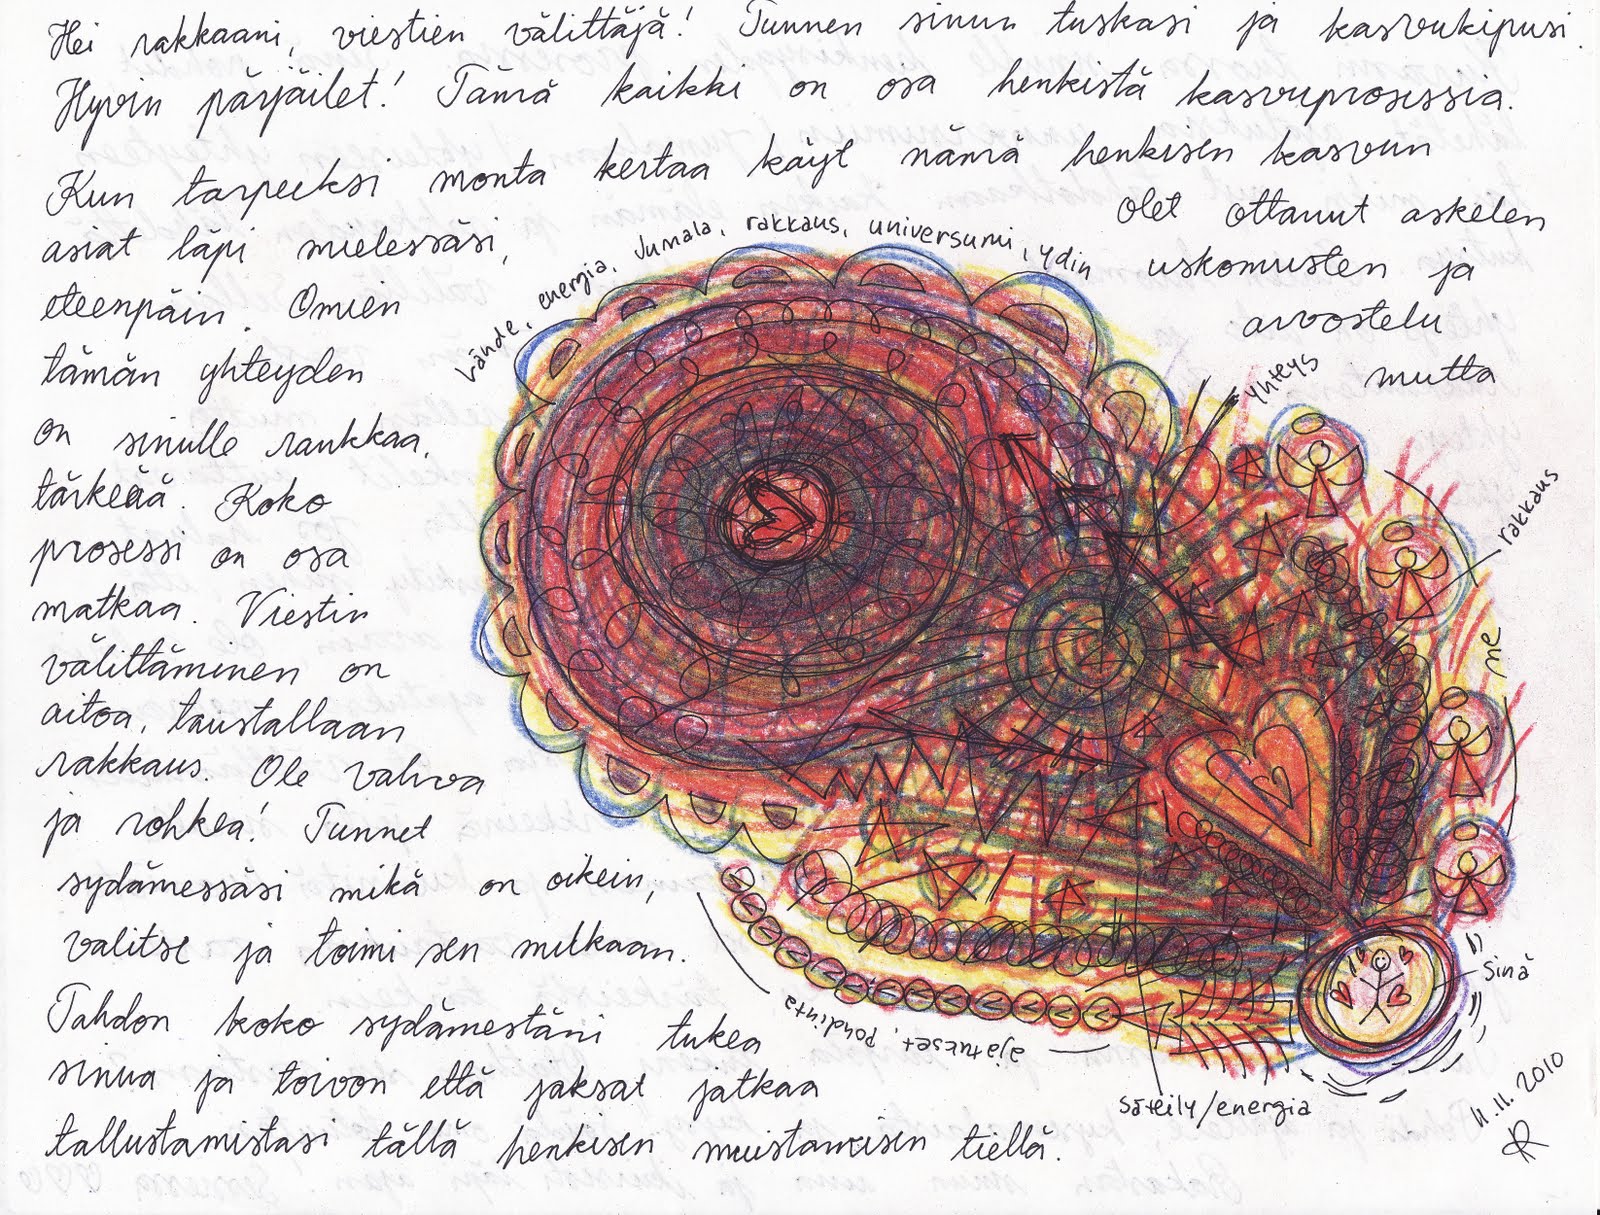 Hei rakkaani, viestien välittäjä! Tunnen sinun tuskasi ja kasvukipusi.
Hyvin pärjäilet! Tämä kaikki on osa henkistä kasvuprosessia.
Kun tarpeeksi monta kertaa käyt nämä henkisen kasvun
asiat läpi mielessäsi, olet ottanut askelen
eteenpäin. Omien uskomusten ja
tämän yhteyden arvostelu
on sinulle rankkaa, mutta
tärkeää. Koko
prosessi on osa
matkaa. Viestin
välittäminen on
aitoa, taustallaan
rakkaus. Ole vahva
ja rohkea! Tunnet
sydämessäsi mikä on oikein,
valitse ja toimi sen mukaan.
Tahdon koko sydämestäni tukea
sinua ja toivon että jaksat jatkaa
tallustamistasi tällä henkisen muistamisen tiellä.
Lähde, energia, Jumala, rakkaus, universumi, ydin
yhteys
rakkaus
me
Sinä
ajatukset, pohdinta
säteily/energia
11.11.2010